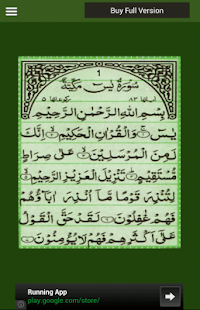 Buy Full Version
1
سورة يس مكية
اياتها ٨٣
ركوعاتها ٥
بسم الله الرحمن الرحيم
يس والقران الحكيم انك
لمن المرسلين على صراط
مستقيم تنزيل العزيز الرحيم
لتنذر قوما ما انذر اباؤهم
فهم غفلون لقد حق القول
على اكثرهم فهم لا يؤمنون
Running App
play.google.com/store/